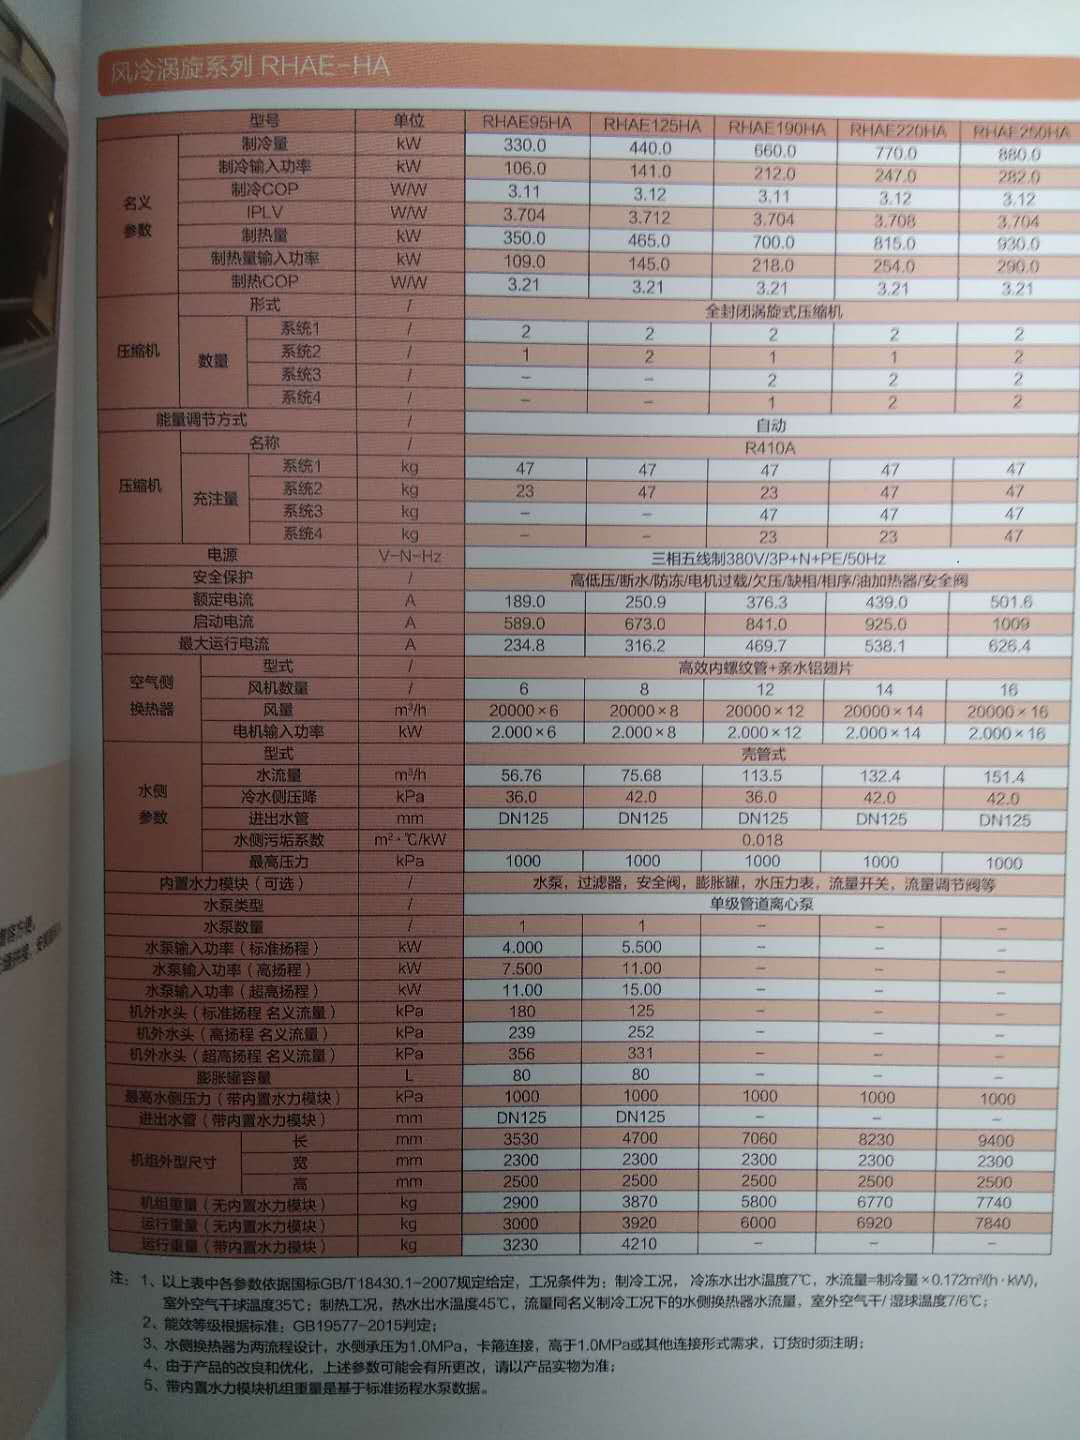 风冷涡旋系列 RHAE-HA
型号 单位 RHAE95HA RHAE125HA RHAE190HA RHAE220HA RHAE250HA
名义参数 制冷量 kW 330.0 440.0 660.0 770.0 880.0
制冷输入功率 kW 106.0 141.0 212.0 247.0 282.0
制冷COP W/W 3.11 3.12 3.11 3.12 3.12
IPLV W/W 3.704 3.712 3.704 3.708 3.704
制热量 kW 350.0 465.0 700.0 815.0 930.0
制热量输入功率 kW 109.0 145.0 218.0 254.0 290.0
制热COP W/W 3.21 3.21 3.21 3.21 3.21
压缩机 形式 / 全封闭涡旋式压缩机
数量 系统1 / 2 2 2 2 2
系统2 / 1 2 1 1 2
系统3 / - - 2 2 2
系统4 / - - 1 2 2
能量调节方式 / 自动
压缩机 名称 / R410A
充注量 系统1 kg 47 47 47 47 47
系统2 kg 23 47 23 47 47
系统3 kg - - 47 47 47
系统4 kg - - 23 23 47
电源 V-N-Hz 三相五线制380V/3P+N+PE/50Hz
安全保护 / 高低压/断水/防冻/电机过载/欠压/缺相/相序/油加热器/安全阀
额定电流 A 189.0 250.9 376.3 439.0 501.6
启动电流 A 589.0 673.0 841.0 925.0 1009
最大运行电流 A 234.8 316.2 469.7 538.1 626.4
空气侧换热器 型式 / 高效内螺纹管+亲水铝翅片
风机数量 / 6 8 12 14 16
风量 m³/h 20000×6 20000×8 20000×12 20000×14 20000×16
电机输入功率 kW 2.000×6 2.000×8 2.000×12 2.000×14 2.000×16
水侧参数 型式 / 壳管式
水流量 m³/h 56.76 75.68 113.5 132.4 151.4
冷水侧压降 kPa 36.0 42.0 36.0 42.0 42.0
进出水管 mm DN125 DN125 DN125 DN125 DN125
水侧污垢系数 m²·℃/kW 0.018
最高压力 kPa 1000 1000 1000 1000 1000
内置水力模块（可选） / 水泵，过滤器，安全阀，膨胀罐，水压力表，流量开关，流量调节阀等
水泵类型 / 单级管道离心泵
水泵数量 / 1 1 - - -
水泵输入功率（标准扬程） kW 4.000 5.500 - - -
水泵输入功率（高扬程） kW 7.500 11.00 - - -
水泵输入功率（超高扬程） kW 11.00 15.00 - - -
机外水头（标准扬程 名义流量） kPa 180 125 - - -
机外水头（高扬程 名义流量） kPa 239 252 - - -
机外水头（超高扬程 名义流量） kPa 356 331 - - -
膨胀罐容量 L 80 80 - - -
最高水侧压力（带内置水力模块） kPa 1000 1000 1000 1000 1000
进出水管（带内置水力模块） mm DN125 DN125 - - -
机组外型尺寸 长 mm 3530 4700 7060 8230 9400
宽 mm 2300 2300 2300 2300 2300
高 mm 2500 2500 2500 2500 2500
机组重量（无内置水力模块） kg 2900 3870 5800 6770 7740
运行重量（无内置水力模块） kg 3000 3920 6000 6920 7840
运行重量（带内置水力模块） kg 3230 4210 - - -
注：1、以上表中各参数依据国标GB/T18430.1-2007规定给定，工况条件为：制冷工况，冷冻水出水温度7℃，水流量=制冷量×0.172m³/(h·kW)，
室外空气干球温度35℃；制热工况，热水出水温度45℃，流量同名义制冷工况下的水侧换热器水流量，室外空气干/湿球温度7/6℃；
2、能效等级根据标准：GB19577-2015判定；
3、水侧换热器为两流程设计，水侧承压为1.0MPa，卡箍连接，高于1.0MPa或其他连接形式需求，订货时须注明；
4、由于产品的改良和优化，上述参数可能会有所更改，请以产品实物为准；
5、带内置水力模块机组重量是基于标准扬程水泵数据。